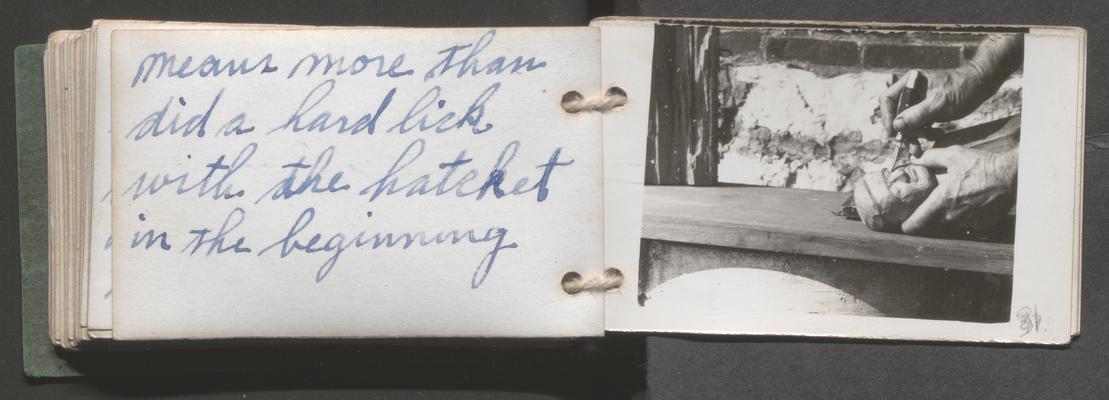 means more than
did a hard lick
with the hatchet
in the beginning
31.